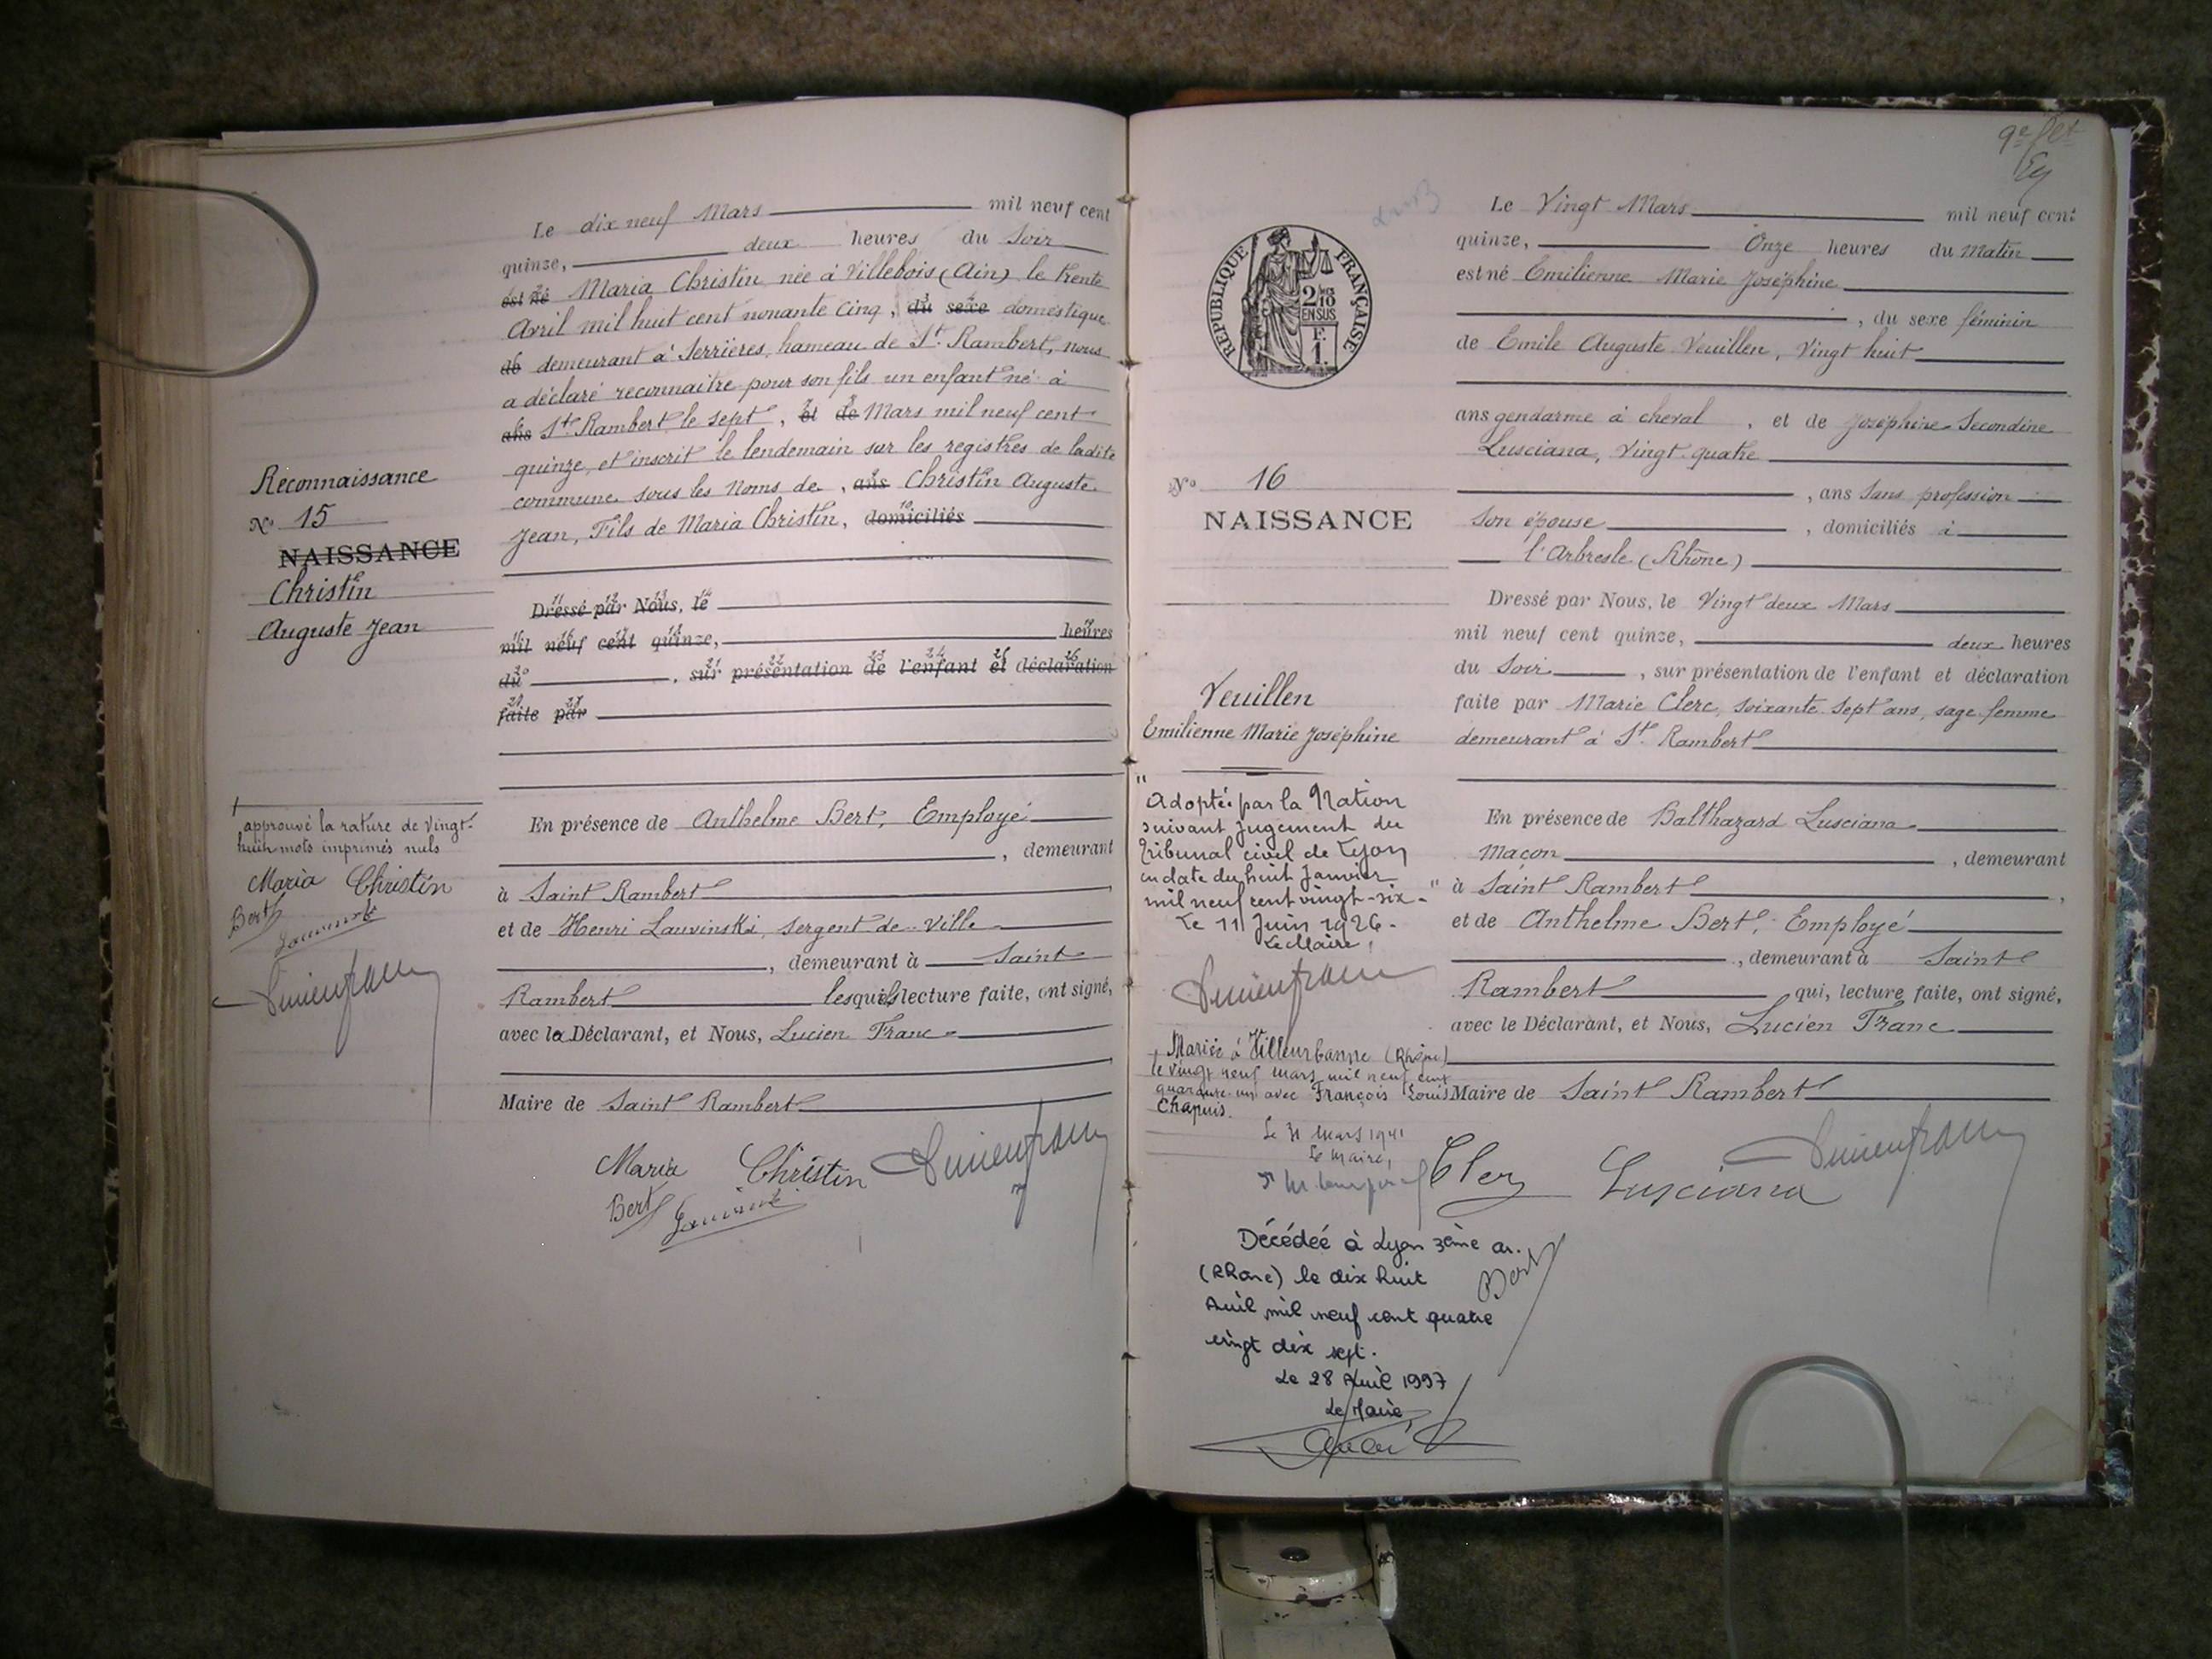 Le dix neuf Mars mil neuf cent
quinze, deux heures du Soir
est né Maria Christin, née à Villebois (Ain) le trente
Avril mil huit cent nonante cinq, du sexe domestique
de demeurant à Serrières, hameau de St. Rambert, nous
a déclaré reconnaître pour son fils un enfant né à
ans St. Rambert le sept, et de Mars mil neuf cent
quinze, et inscrit le lendemain sur les registres de ladite
commune sous les Noms de, ans Christin Auguste
Jean, Fils de Maria Christin, domiciliés
Dressé par Nous, le
mil neuf cent quinze, heures
du , sur présentation de l'enfant et déclaration
faite par
En présence de Anthelme Bert, Employé
, demeurant
à Saint Rambert
et de Henri Lauvinski, sergent de Ville
, demeurant à Saint
Rambert lesquels lecture faite, ont signé,
avec la Déclarant, et Nous, Lucien Franc
Maire de Saint Rambert
Maria Christin Lucien franc
Bert
Reconnaissance
No 15
NAISSANCE
Christin
Auguste Jean
approuvé la rature de vingt-
huit mots imprimés nuls
Maria Christin
Bert
Lucien franc
9e
RÉPUBLIQUE FRANÇAISE
2/10
EN SUS
F.
1.
No 16
NAISSANCE
Veuillen
Emilienne Marie Joséphine
"Adoptée par la Nation
suivant jugement du
Tribunal civil de Lyon
en date du huit Janvier
mil neuf cent vingt-six-"
Le 11 Juin 1926.
Le Maire,
Lucien franc
Mariée à Villeurbanne (Rhône)
le vingt neuf mars mil neuf cent
quarante un avec François Louis
Chapuis.
Le 31 Mars 1941
Le Maire,
Le Vingt Mars mil neuf cent
quinze, Onze heures du Matin
est né Emilienne Marie Joséphine
, du sexe féminin
de Emile Auguste Veuillen, Vingt huit
ans gendarme à cheval, et de Joséphine Secondine
Lusciana, Vingt quatre
, ans Sans profession
Son épouse, domiciliés à
l'Arbresle (Rhône)
Dressé par Nous, le Vingt deux Mars
mil neuf cent quinze, deux heures
du Soir, sur présentation de l'enfant et déclaration
faite par Marie Clerc, soixante sept ans, sage femme
demeurant à St. Rambert
En présence de Balthazard Lusciana
Maçon, demeurant
à Saint Rambert,
et de Anthelme Bert, Employé
, demeurant à Saint
Rambert qui, lecture faite, ont signé,
avec le Déclarant, et Nous, Lucien Franc
Maire de Saint Rambert
Clerc Lusciana Lucien franc
Bert
Décédée à Lyon 3ème ar.
(Rhône) le dix huit
Avril mil neuf cent quatre
vingt dix sept.
Le 28 Avril 1997
Le Maire,